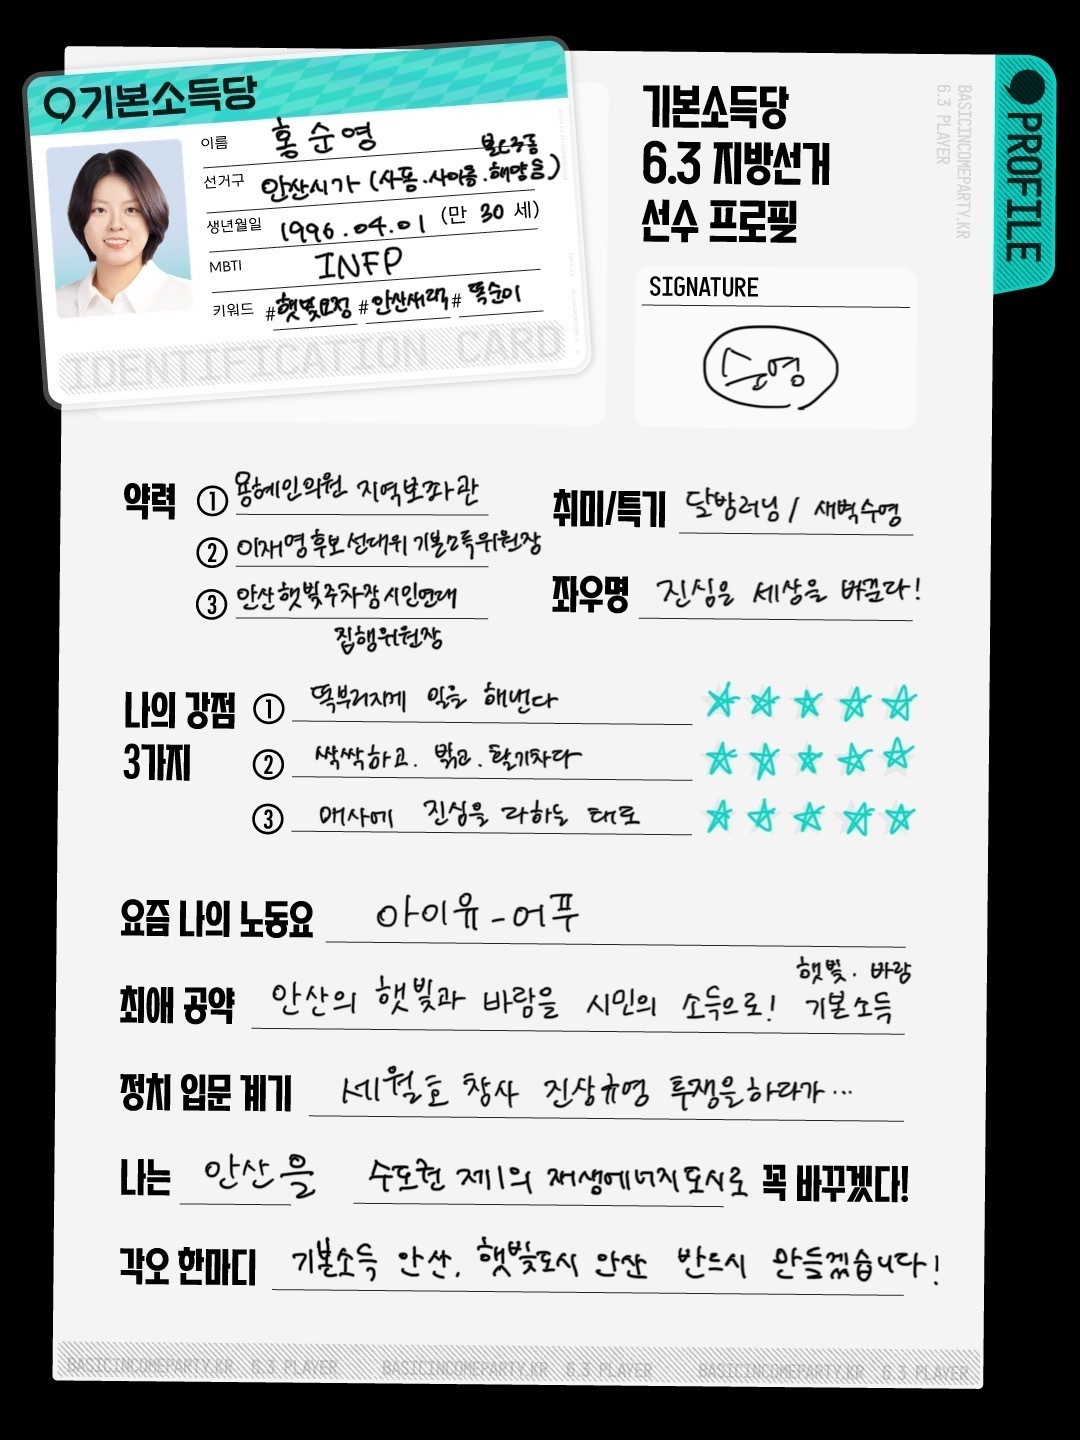 기본소득당
이름 홍순영
선거구 안산시가 (사동·사이동·해양동·본오3동)
생년월일 1996.04.01 (만 30 세)
MBTI INFP
키워드 #햇빛요정 #안산새리더 #똑순이
IDENTIFICATION CARD
기본소득당
6.3 지방선거
선수 프로필
SIGNATURE
순영
BASICINCOMEPARTY.KR
6.3 PLAYER
PROFILE
약력 ① 용혜인의원 지역보좌관
② 이재명후보 선대위 기본소득위원장
③ 안산햇빛주차장시민연대
집행위원장
취미/특기 달밤러닝 / 새벽수영
좌우명 진심은 세상을 바꾼다!
나의 강점
3가지
① 똑부러지게 일을 해낸다
② 싹싹하고. 밝고. 활기차다
③ 매사에 진심을 다하는 태도
요즘 나의 노동요 아이유 - 어푸
최애 공약 안산의 햇빛과 바람을 시민의 소득으로! 햇빛·바람 기본소득
정치 입문 계기 세월호 참사 진상규명 투쟁을하다가…
나는 안산을 수도권 제1의 재생에너지도시로 꼭 바꾸겠다!
각오 한마디 기본소득 안산, 햇빛도시 안산 반드시 만들겠습니다!
BASICINCOMEPARTY.KR 6.3 PLAYER BASICINCOMEPARTY.KR 6.3 PLAYER BASICINCOMEPARTY.KR 6.3 PLAYER